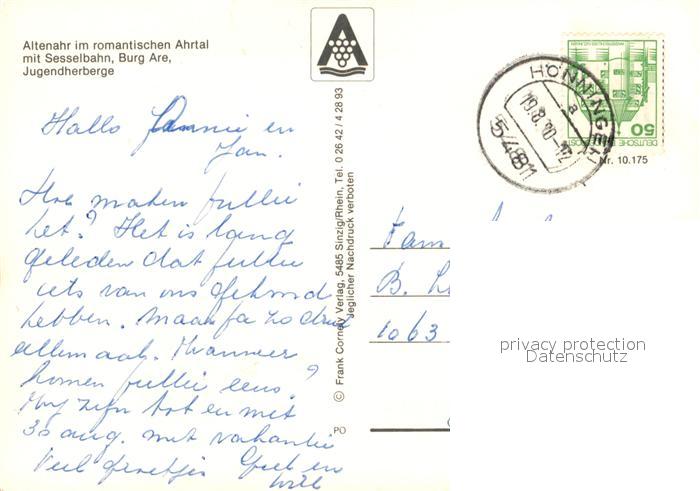 Altenahr im romantischen Ahrtal
mit Sesselbahn, Burg Are,
Jugendherberge
Hallo Jannie en
Jan.
Hoe maken jullie
het? Het is lang
geleden dat jullie
iets van ons gehoord
hebben. Maar ja zo druk
allemaal. Wanneer
komen jullie eens?
Wij zijn tot en met
30 aug. met vakantie
Veel groetjes en
Will
© Frank Cornely Verlag, 5485 Sinzig/Rhein, Tel. 0 26 42 / 4 28 93
Jeglicher Nachdruck verboten
PO
HÖNNINGEN
a
19.8.80-12
5481
50
DEUTSCHE BUNDESPOST
Nr. 10.175
Fam
B. L
1063
privacy protection
Datenschutz